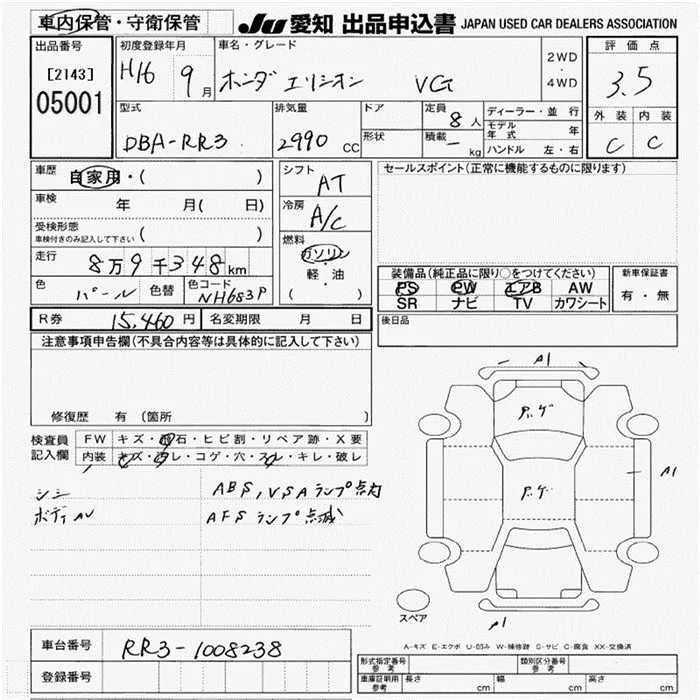 車内保管・守衛保管
JU 愛知 出品申込書 JAPAN USED CAR DEALERS ASSOCIATION
出品番号
[2143]
05001
初度登録年月
H16 9月
車名・グレード
ホンダ エリシオン VG
2WD
・
4WD
評価点
3.5
外装 内装
C C
型式
DBA-RR3
排気量
2990 cc
ドア
形状
定員
8人
積載
- kg
ディーラー・並行
モデル年式 年
ハンドル 左・右
車歴
自家用・( )
車検
年 月( 日)
受検形態
車検付きのみ記入して下さい ( )
走行
8万9千348km
色
パール
色替
色コード
NH683P
シフト
AT
冷房
A/C
燃料
ガソリン
軽・油
( )
セールスポイント(正常に機能するものに限ります)
装備品(純正品に限り○をつけてください)
PS PW エアB AW
SR ナビ TV カワシート
新車保証書
有・無
R券 15,460円 名変期限 月 日
後日品
注意事項申告欄(不具合内容等は具体的に記入して下さい)
修復歴 有 (箇所 )
検査員
記入欄
FW キズ・飛石・ヒビ割・リペア跡・X要
内装 キズ・汚レ・コゲ・穴・スレ・キレ・破レ
シミ
ABS,VSAランプ点灯
AFSランプ点滅
A1
P.ゲ
P.ゲ
A1
A1
スペア
A-キズ E-エクボ U-凹み W-補修跡 S-サビ C-腐食 XX-交換済
車台番号 RR3-1008238
登録番号
形式指定番号
参考
類別区分番号
参考
車庫証明用
参考
長さ cm 幅 cm 高さ cm